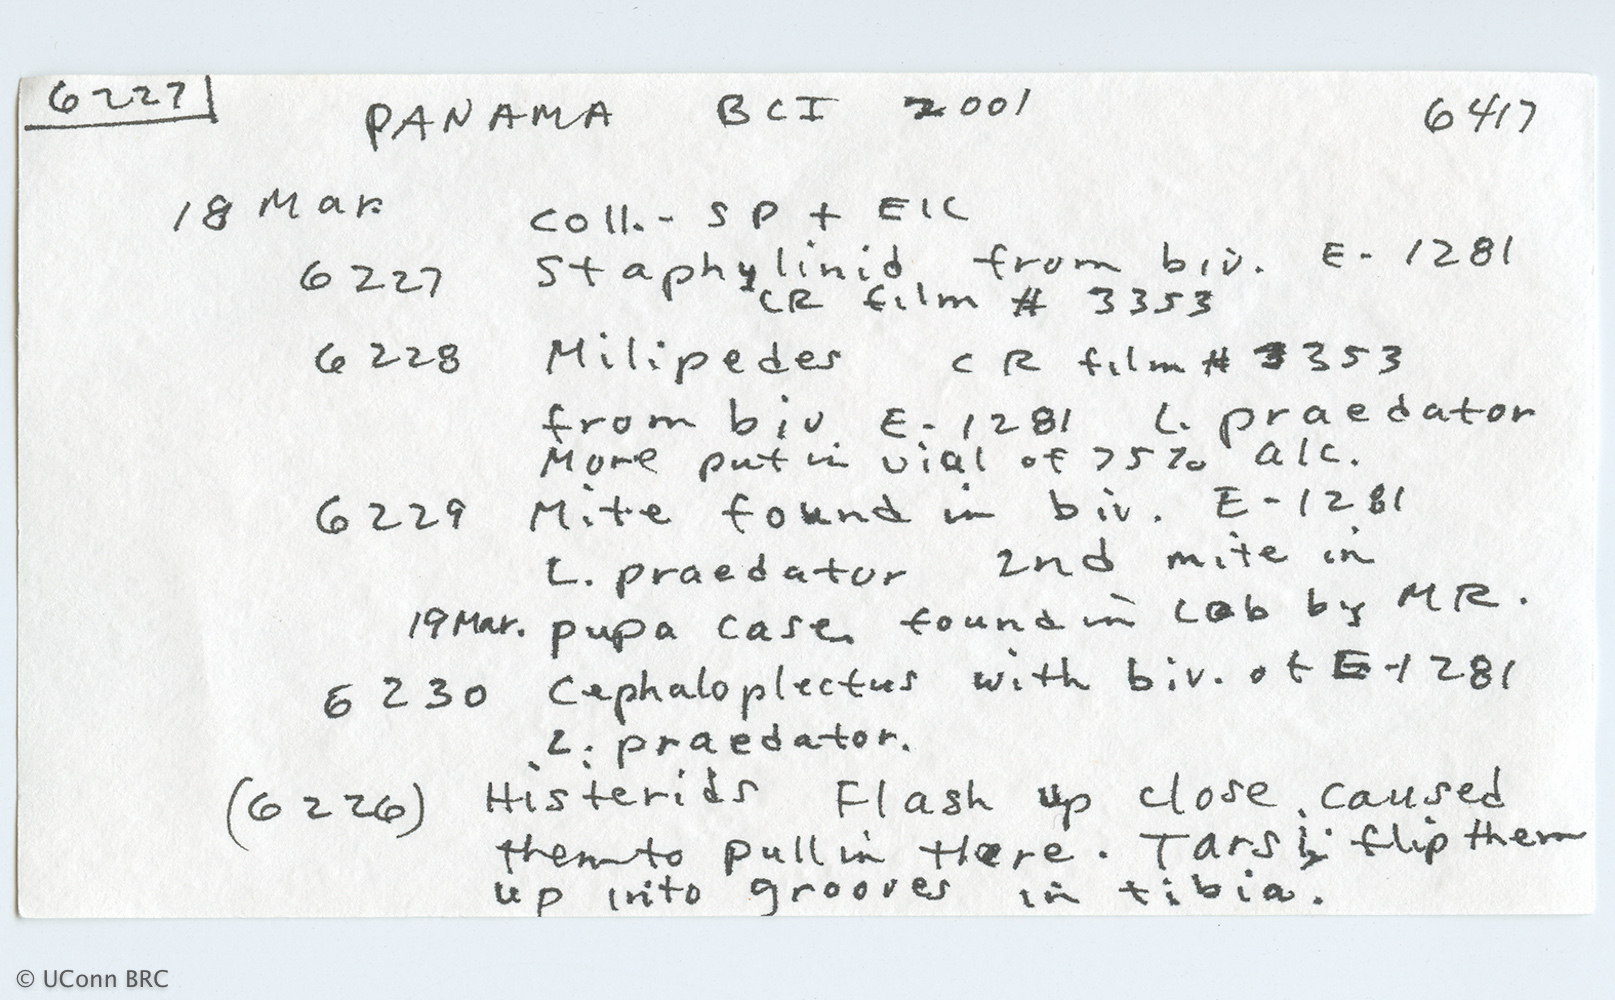 6227
PANAMA BCI 2001 6417
18 Mar. Coll.- SP + EIC
6227 Staphylinid from biv. E-1281
CR film # 3353
6228 Milipedes CR film # 3353
from biv. E-1281 L. praedator
More put in vial of 75% alc.
6229 Mite found in biv. E-1281
L. praedator 2nd mite in
19 Mar. pupa case. found in Lab by MR.
6230 Cephaloplectus with biv. of E-1281
L. praedator.
(6226) Histerids Flash up close, caused
them to pull in there. Tarsi flip them
up into grooves in tibia.
© UConn BRC